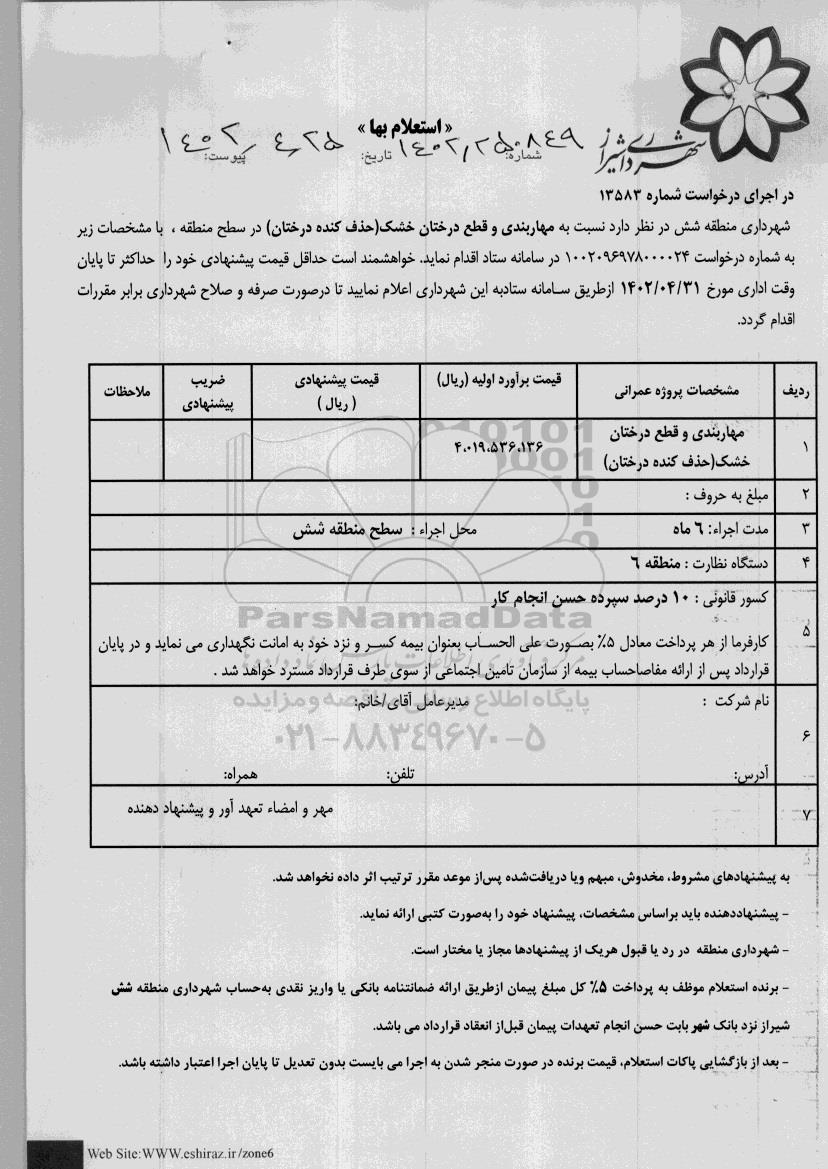 « استعلام بها »
شهرداری شیراز
شماره: ۱۴۰۲/۲۵۰۸۴۹ تاریخ: ۱۴۰۲/۴/۲۵ پیوست:
در اجرای درخواست شماره ۱۳۵۸۳
شهرداری منطقه شش در نظر دارد نسبت به مهاربندی و قطع درختان خشک(حذف کننده درختان) در سطح منطقه ، با مشخصات زیر
به شماره درخواست ۱۰۰۲۰۹۶۹۷۸۰۰۰۰۲۴ در سامانه ستاد اقدام نماید. خواهشمند است حداقل قیمت پیشنهادی خود را حداکثر تا پایان
وقت اداری مورخ ۱۴۰۲/۰۴/۳۱ ازطریق سامانه ستادبه این شهرداری اعلام نمایید تا درصورت صرفه و صلاح شهرداری برابر مقررات
اقدام گردد.
ردیف مشخصات پروژه عمرانی قیمت برآورد اولیه (ریال) قیمت پیشنهادی ( ریال ) ضریب پیشنهادی ملاحظات
۱ مهاربندی و قطع درختان خشک(حذف کننده درختان) ۴،۰۱۹،۵۳۶،۱۳۶
۲ مبلغ به حروف :
۳ مدت اجراء: ۶ ماه محل اجراء : سطح منطقه شش
۴ دستگاه نظارت : منطقه ۶
۵ کسور قانونی : ۱۰ درصد سپرده حسن انجام کار
کارفرما از هر پرداخت معادل ۵٪ بصورت علی الحساب بعنوان بیمه کسر و نزد خود به امانت نگهداری می نماید و در پایان
قرارداد پس از ارائه مفاصاحساب بیمه از سازمان تامین اجتماعی از سوی طرف قرارداد مسترد خواهد شد .
۶ نام شرکت : مدیرعامل آقای/خانم:
آدرس: تلفن: همراه:
۷ مهر و امضاء تعهد آور و پیشنهاد دهنده
ParsNamadData
پایگاه اطلاع رسانی مناقصه و مزایده
۰۲۱-۸۸۳۴۹۶۷۰-۵
به پیشنهادهای مشروط، مخدوش، مبهم ویا دریافت‌شده پس‌از موعد مقرر ترتیب اثر داده نخواهد شد.
- پیشنهاددهنده باید براساس مشخصات، پیشنهاد خود را به‌صورت کتبی ارائه نماید.
- شهرداری منطقه در رد یا قبول هریک از پیشنهادها مجاز یا مختار است.
- برنده استعلام موظف به پرداخت ۵٪ کل مبلغ پیمان ازطریق ارائه ضمانتنامه بانکی یا واریز نقدی به‌حساب شهرداری منطقه شش
شیراز نزد بانک شهر بابت حسن انجام تعهدات پیمان قبل‌از انعقاد قرارداد می باشد.
- بعد از بازگشایی پاکات استعلام، قیمت برنده در صورت منجر شدن به اجرا می بایست بدون تعدیل تا پایان اجرا اعتبار داشته باشد.
Web Site:WWW.eshiraz.ir/zone6